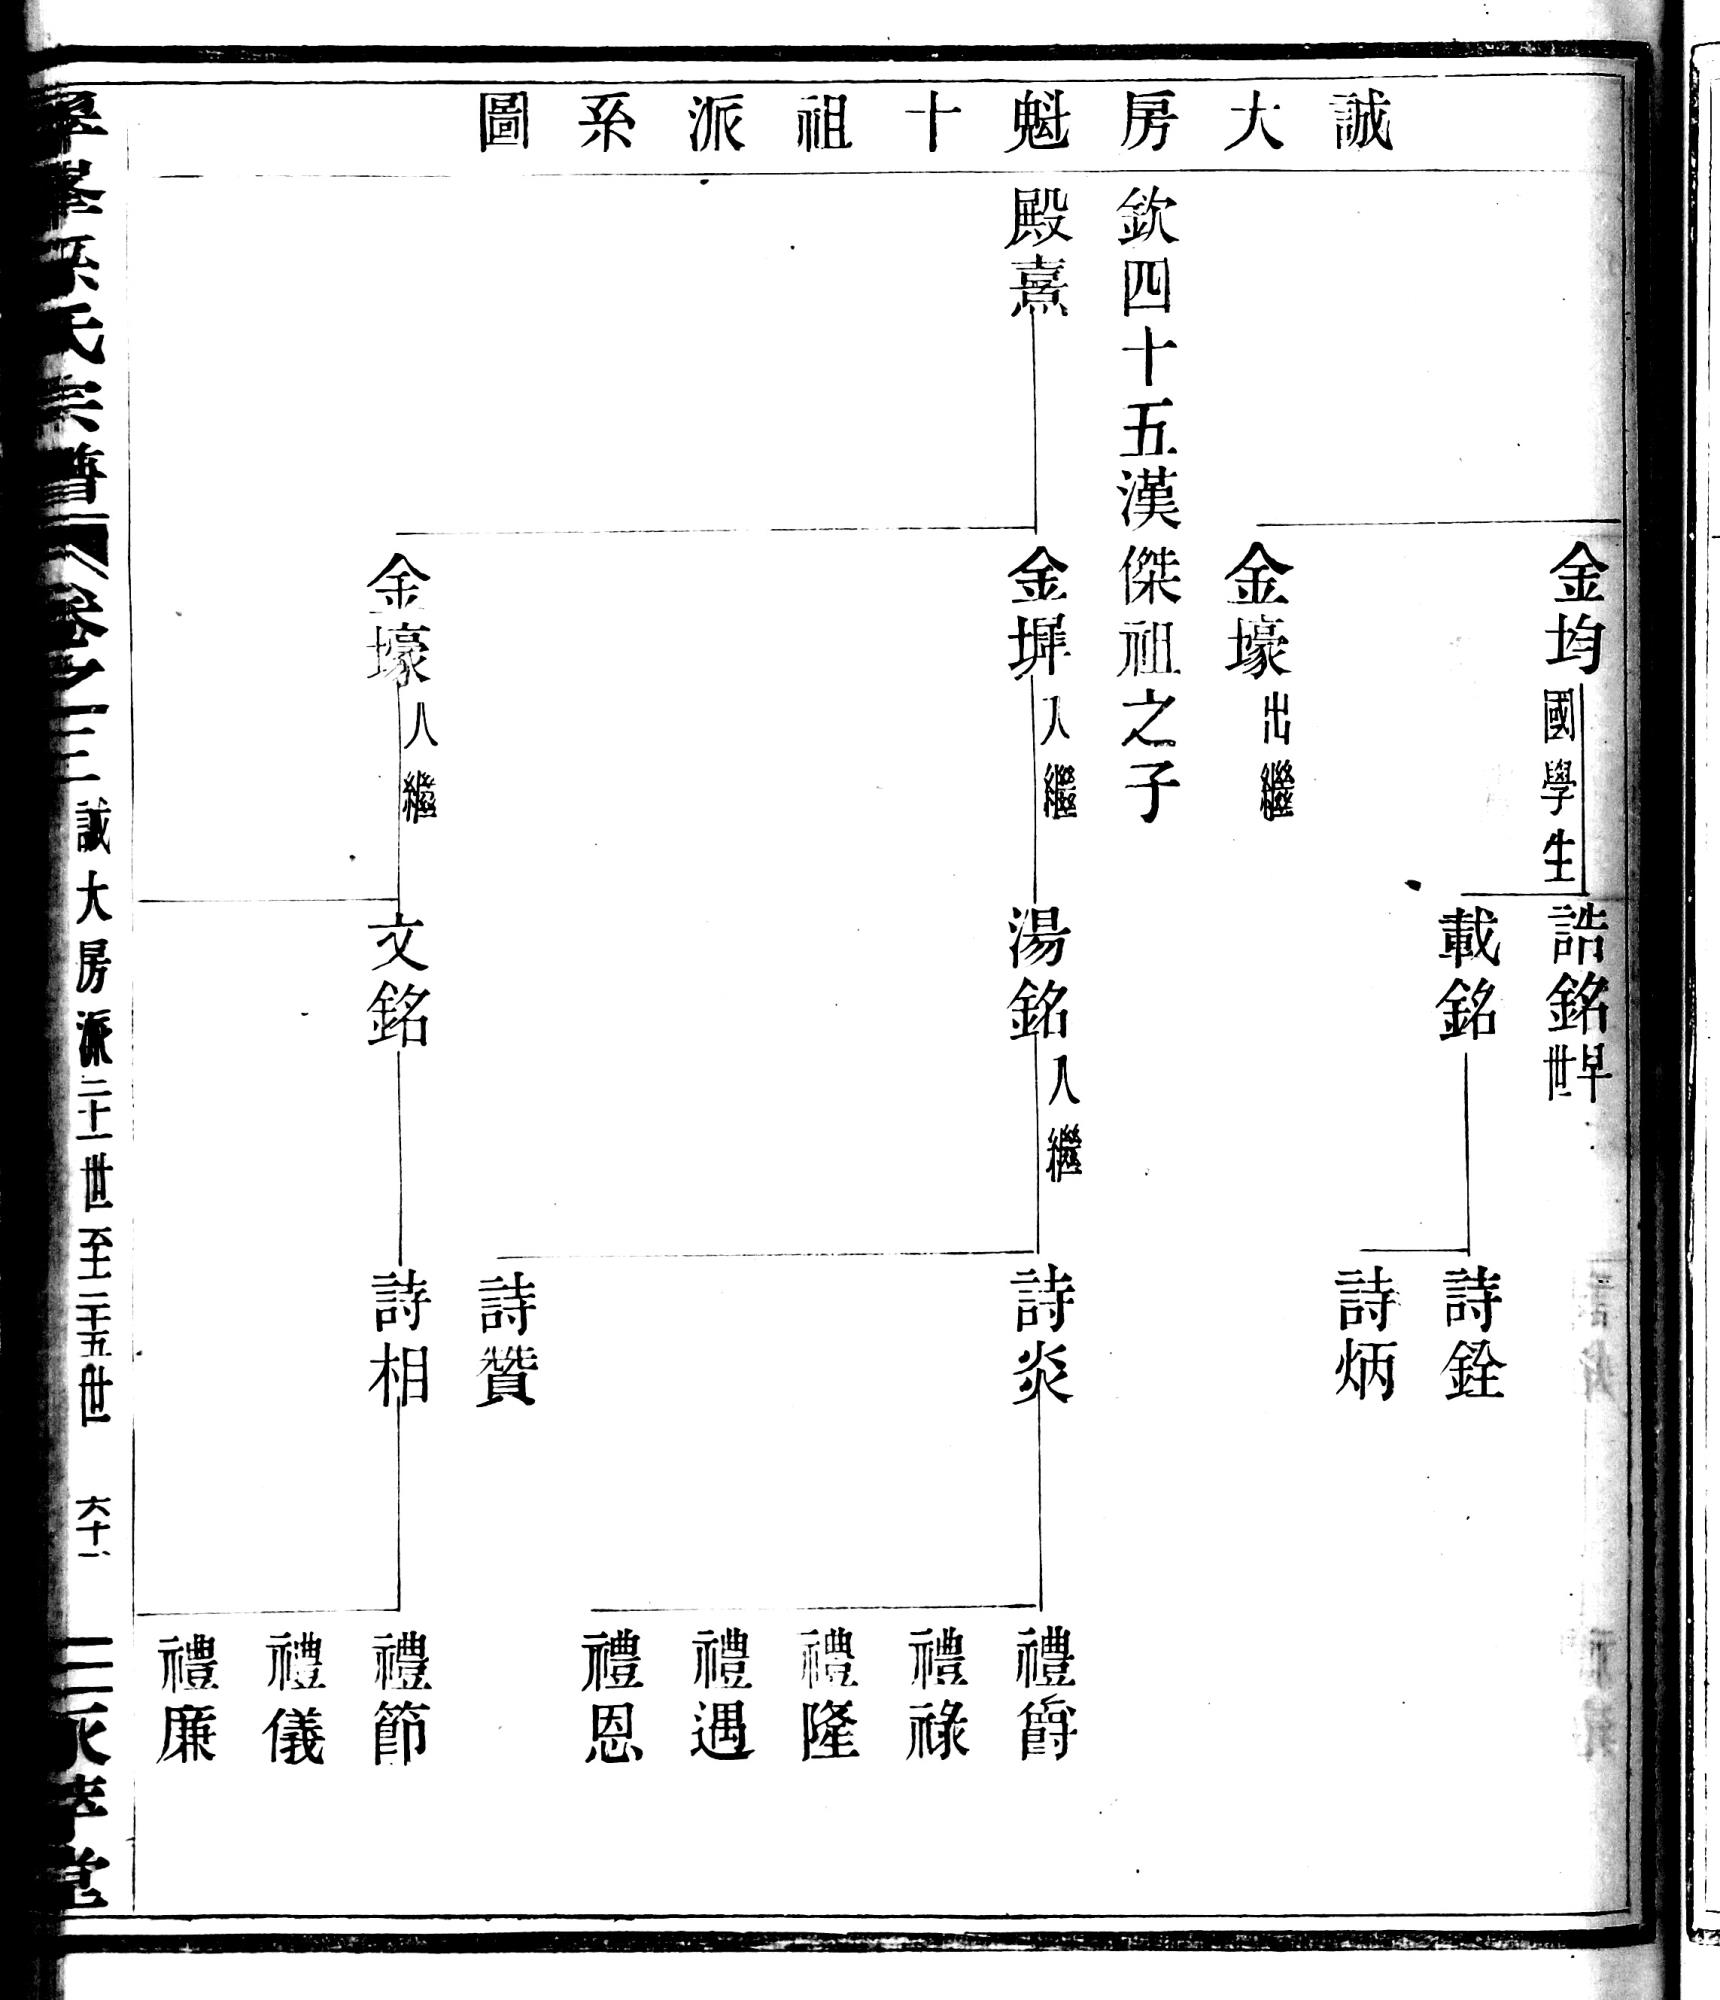 誠大房魁十祖派系圖
金均國學生
誥銘早世
載銘
詩銓
詩炳
金壕出繼
欽四十五漢傑祖之子
殿熹
金墀入繼
湯銘入繼
詩炎
禮爵
禮祿
禮隆
禮遇
禮恩
詩贊
金壕入繼
文銘
詩相
禮節
禮儀
禮廉
孫氏宗譜
卷之三
誠大房派二十一世至二十五世
六十一
孝堂